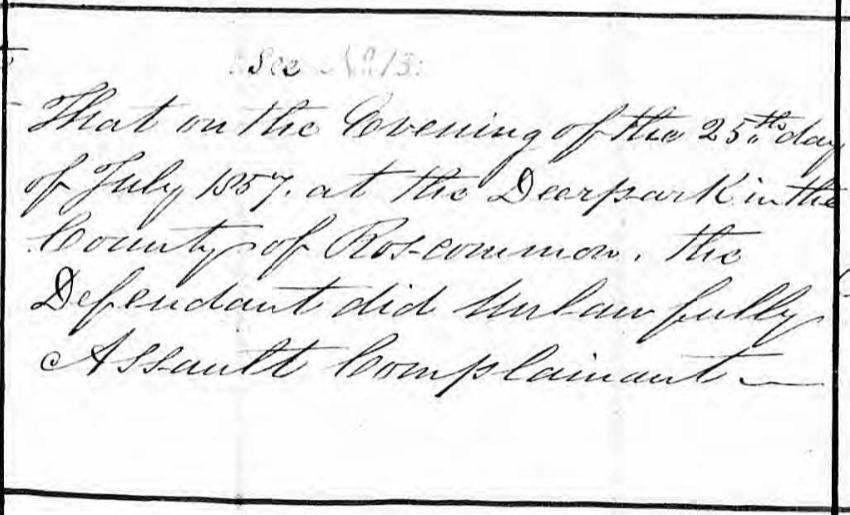 See No 13.
That on the Evening of the 25th day
of July 1857. at the Deerpark in the
County of Roscommon. the
Defendant did Unlawfully
Assault Complainant —